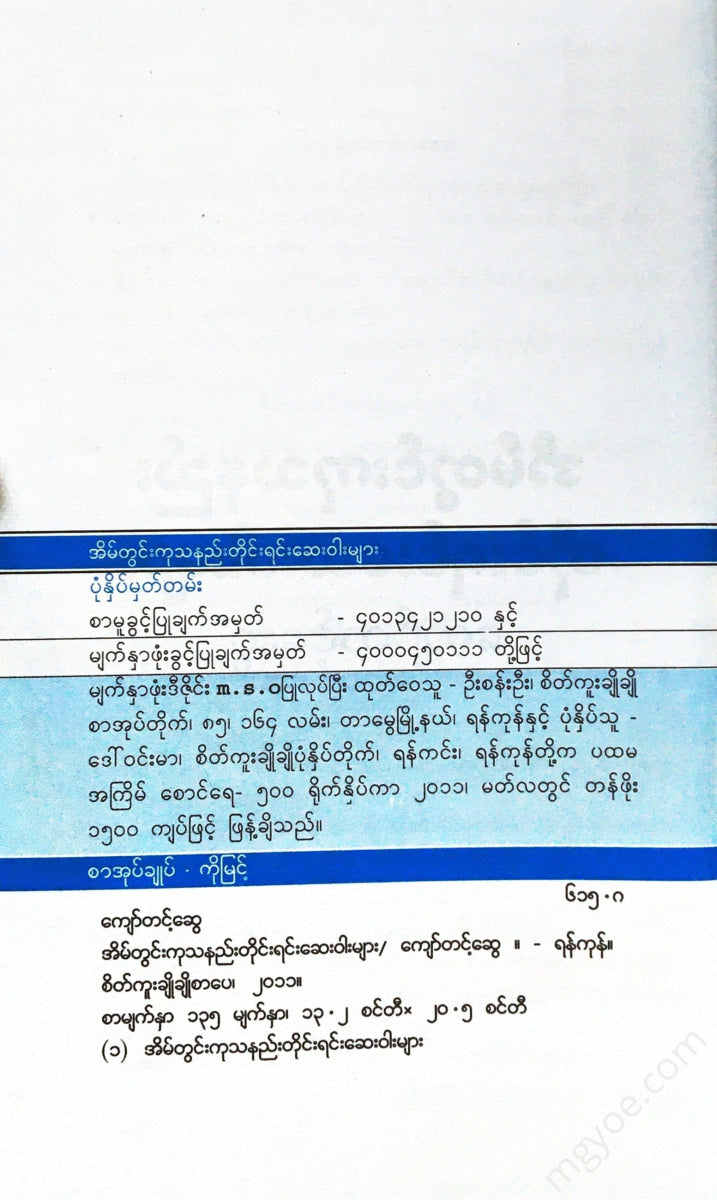 အိမ်တွင်းကုသနည်းတိုင်းရင်းဆေးဝါးများ
ပုံနှိပ်မှတ်တမ်း
စာမူခွင့်ပြုချက်အမှတ် - ၄၀၁၃၄၂၁၂၁၀ နှင့်
မျက်နှာဖုံးခွင့်ပြုချက်အမှတ် - ၄၀၀၀၄၅၀၁၁၁ တို့ဖြင့်
မျက်နှာဖုံးဒီဇိုင်း m.s.oပြုလုပ်ပြီး ထုတ်ဝေသူ - ဦးစန်းဦး၊ စိတ်ကူးချိုချို
စာအုပ်တိုက်၊ ၈၅၊ ၁၆၄ လမ်း၊ တာမွေမြို့နယ်၊ ရန်ကုန်နှင့် ပုံနှိပ်သူ -
ဒေါ်ဝင်းမာ၊ စိတ်ကူးချိုချိုပုံနှိပ်တိုက်၊ ရန်ကင်း၊ ရန်ကုန်တို့က ပထမ
အကြိမ် စောင်ရေ- ၅၀၀ ရိုက်နှိပ်ကာ ၂၀၁၁၊ မတ်လတွင် တန်ဖိုး
၁၅၀၀ ကျပ်ဖြင့် ဖြန့်ချိသည်။
စာအုပ်ချုပ် - ကိုမြင့်
၆၁၅.ဂ
ကျော်တင့်ဆွေ
အိမ်တွင်းကုသနည်းတိုင်းရင်းဆေးဝါးများ/ ကျော်တင့်ဆွေ ။ - ရန်ကုန်။
စိတ်ကူးချိုချိုစာပေ၊ ၂၀၁၁။
စာမျက်နှာ ၁၃၅ မျက်နှာ၊ ၁၃.၂ စင်တီ× ၂၀.၅ စင်တီ
(၁) အိမ်တွင်းကုသနည်းတိုင်းရင်းဆေးဝါးများ
mgyoe.com